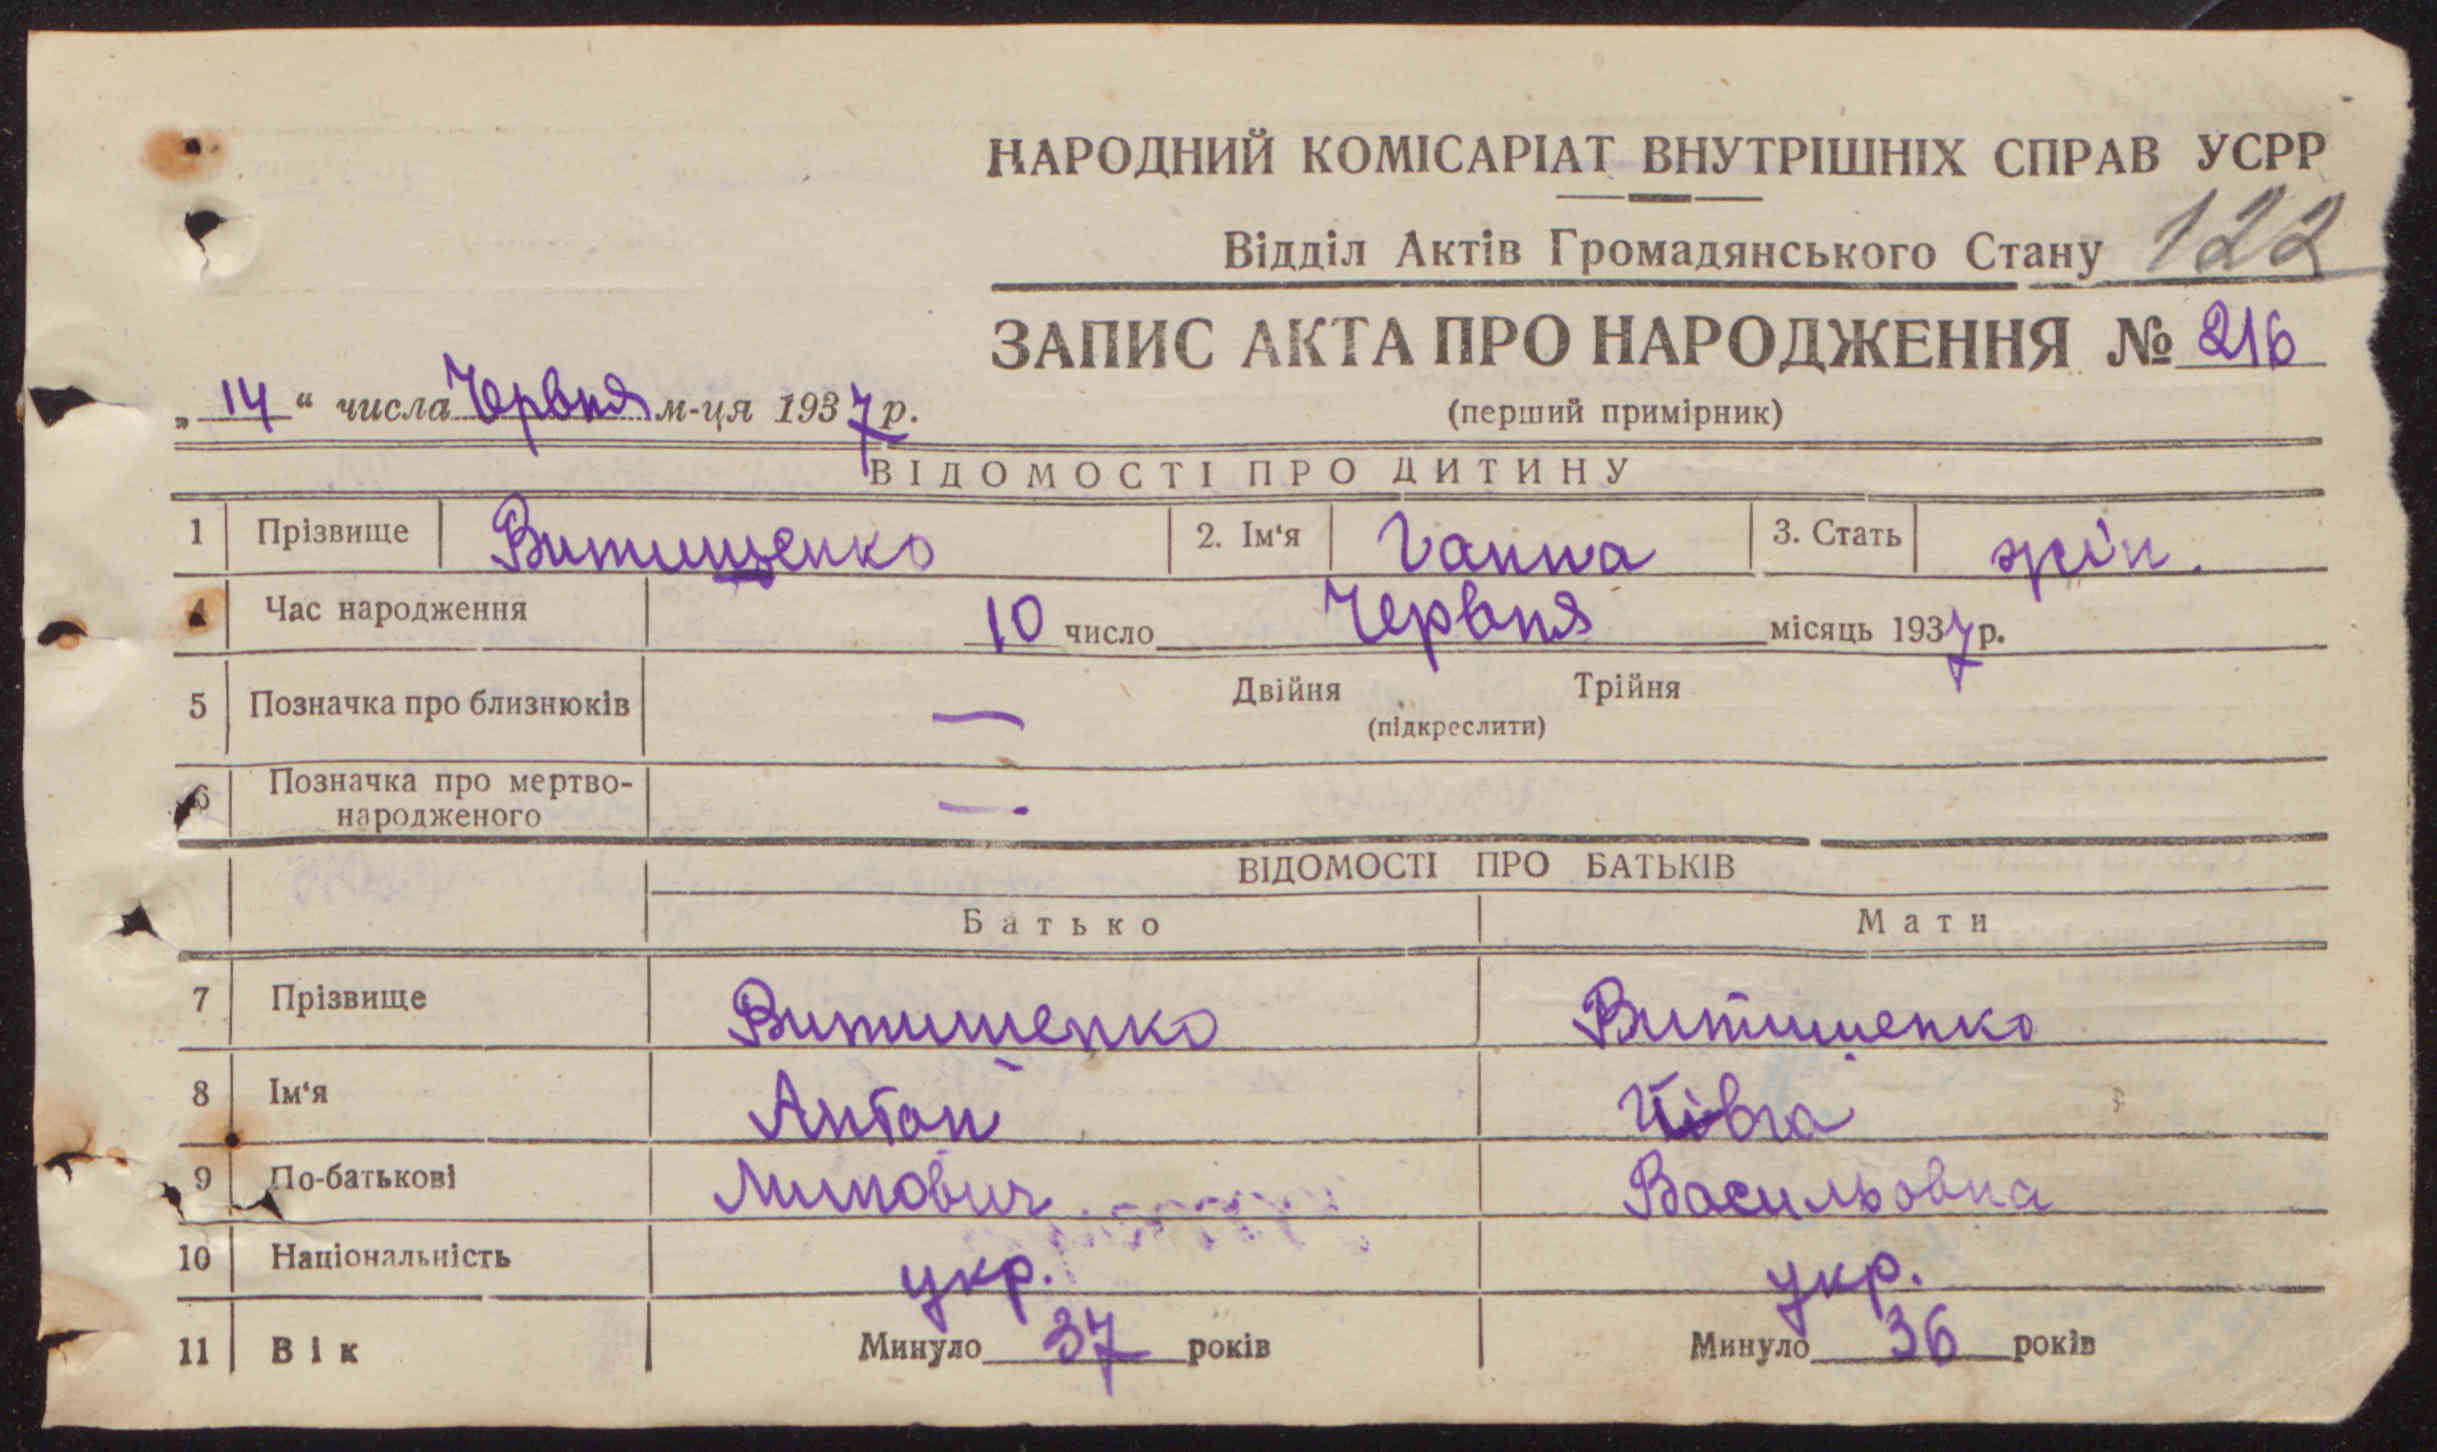 НАРОДНИЙ КОМІСАРІАТ ВНУТРІШНІХ СПРАВ УСРР
Відділ Актів Громадянського Стану 122
ЗАПИС АКТА ПРО НАРОДЖЕННЯ № 216
„ 14 “ числа Червня м-ця 1937 р.
(перший примірник)
ВІДОМОСТІ ПРО ДИТИНУ
1 Прізвище Витищенко 2. Ім‘я Ганна 3. Стать жін.
4 Час народження 10 число Червня місяць 1937 р.
5 Позначка про близнюків — Двійня Трійня
(підкреслити)
6 Позначка про мертво-
народженого —
ВІДОМОСТІ ПРО БАТЬКІВ
Батько Мати
7 Прізвище Витишенко Витишенко
8 Ім‘я Антон
9 По-батькові Васильовна
10 Національність укр. укр.
11 Вік Минуло 37 років Минуло 36 років